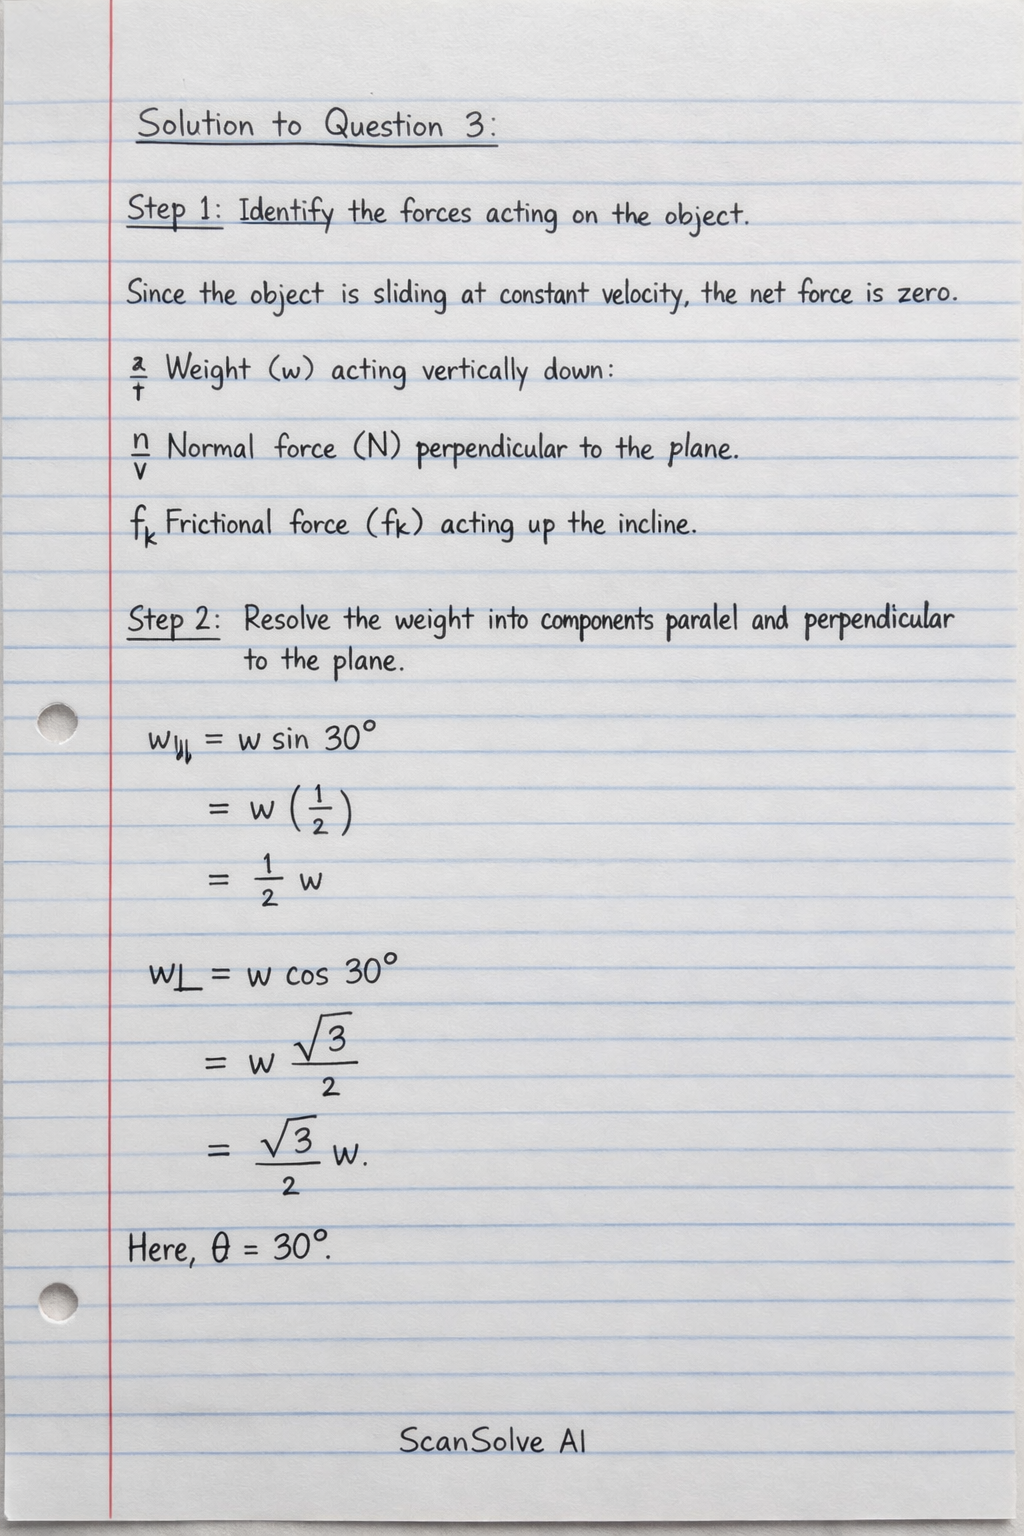 Solution to Question 3:
Step 1: Identify the forces acting on the object.
Since the object is sliding at constant velocity, the net force is zero.
a/t Weight (w) acting vertically down:
n/v Normal force (N) perpendicular to the plane.
fk Frictional force (fk) acting up the incline.
Step 2: Resolve the weight into components paralel and perpendicular
to the plane.
w = w sin 30°
= w (1/2)
= 1/2 w
w⊥ = w cos 30°
= w √3/2
= √3/2 w.
Here, θ = 30°.
ScanSolve AI